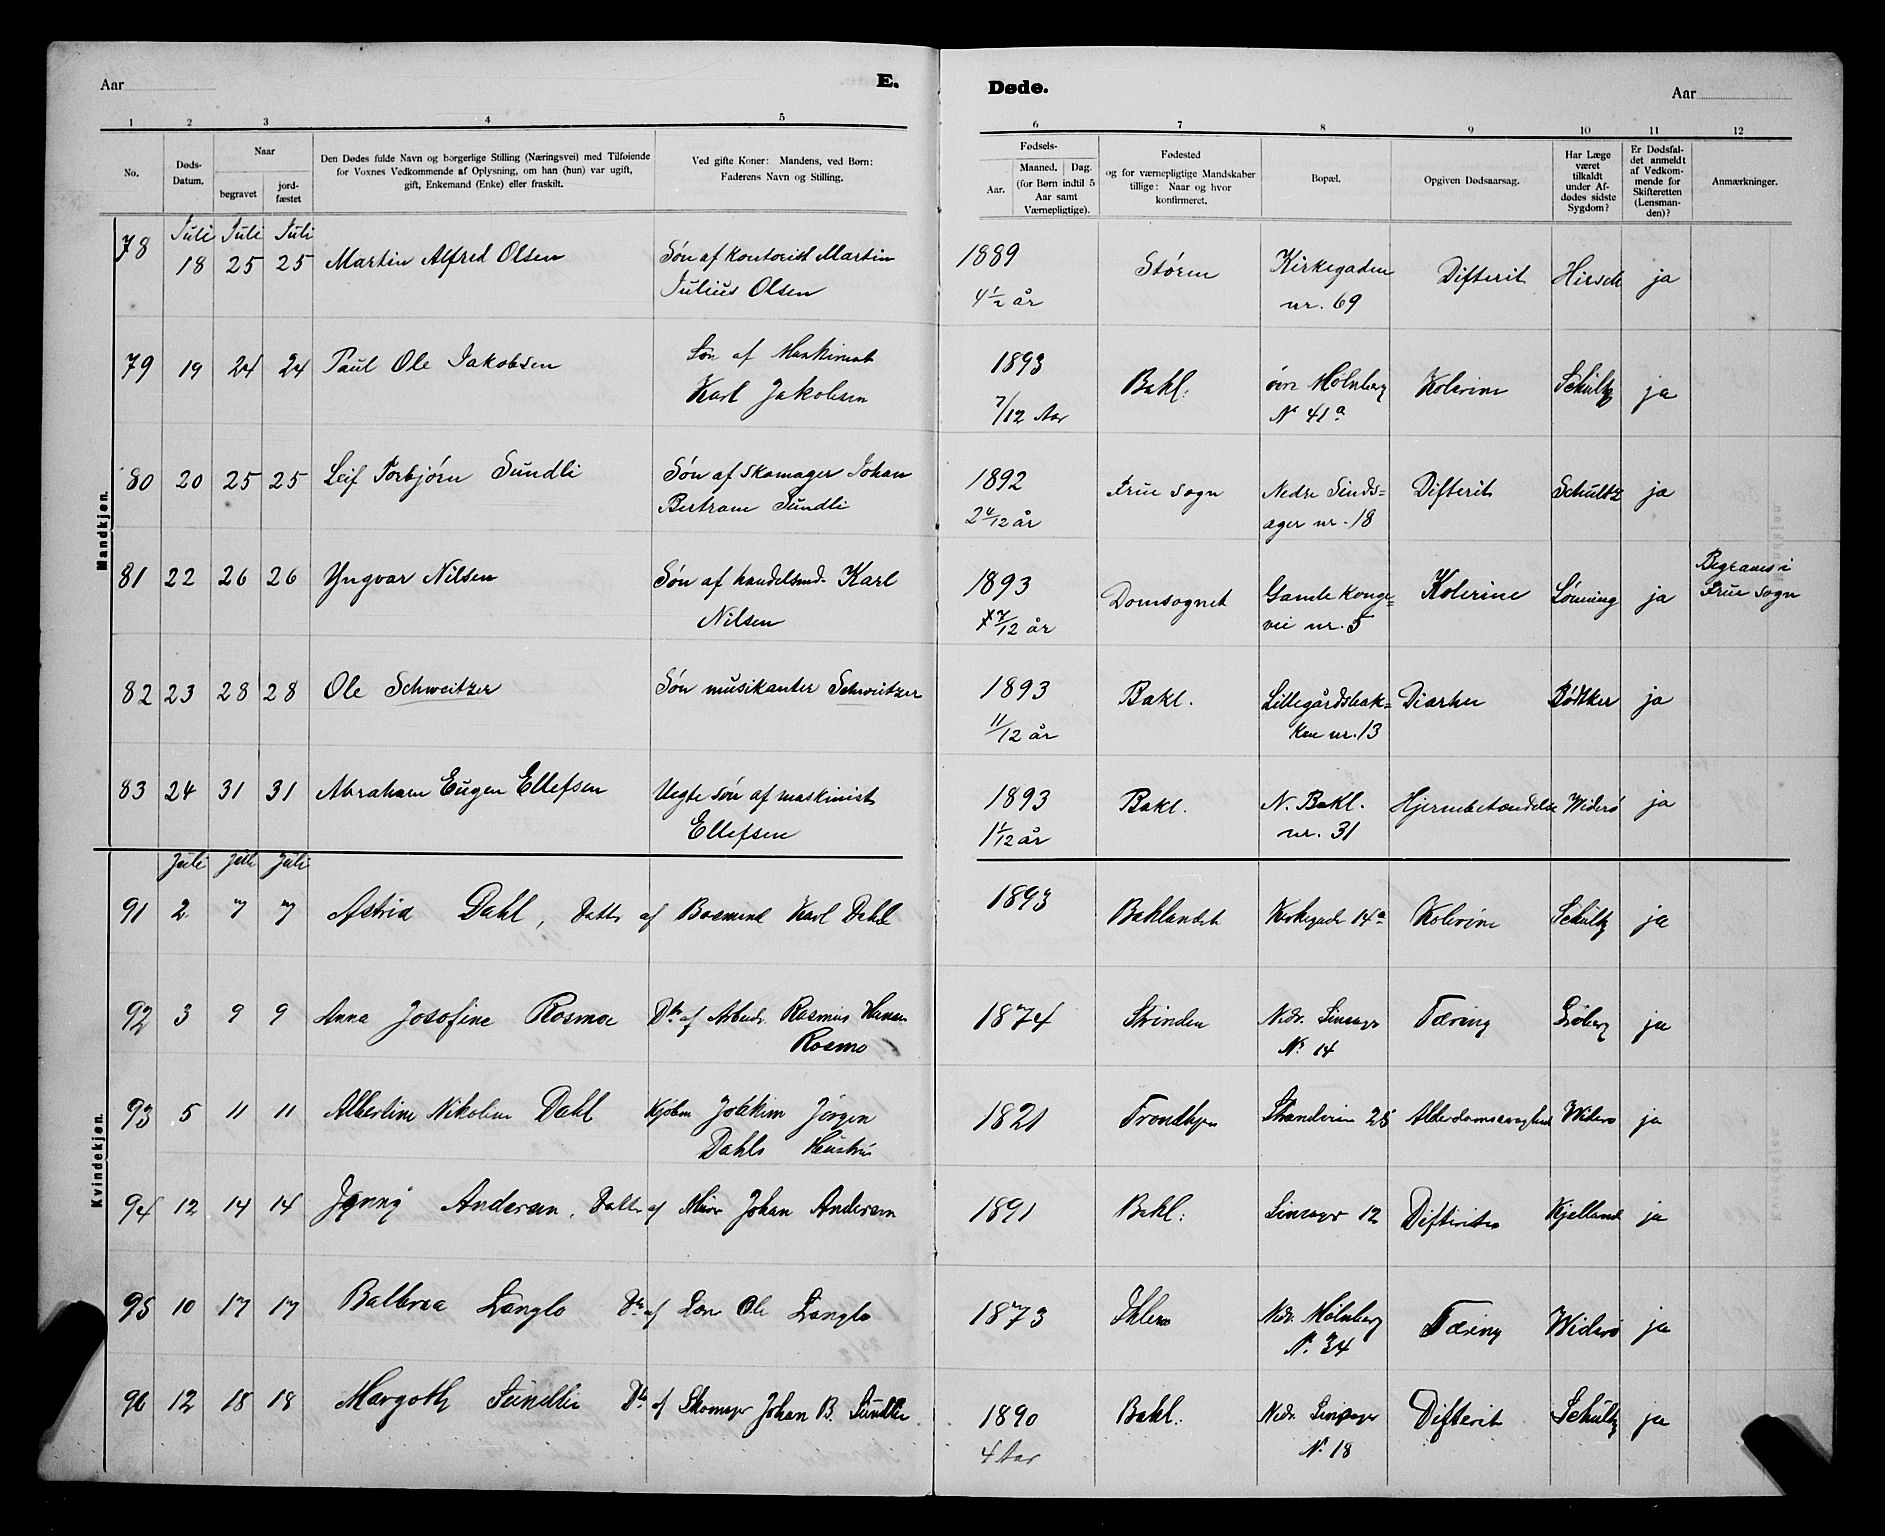 Aar
E.
Døde.
Aar
1 2 3 4 5 6 7 8 9 10 11 12
No.
Døds-Datum.
Naar
begravet
jord-fæstet
Den Dødes fulde Navn og borgerlige Stilling (Næringsvei) med Tilføiende
for Voxnes Vedkommende af Oplysning, om han (hun) var ugift,
gift, Enkemand (Enke) eller fraskilt.
Ved gifte Koner: Mandens, ved Børn:
Faderens Navn og Stilling.
Fødsels-
Aar.
Maaned. Dag.
(for Børn indtil 5
Aar samt
Værnepligtige).
Fødested
og for værnepligtige Mandskaber
tillige: Naar og hvor
konfirmeret.
Bopæl.
Opgiven Dødsaarsag.
Har Læge
været
tilkaldt
under Af-
dødes sidste
Sygdom?
Er Dødsfal-
det anmeldt
af Vedkom-
mende for
Skifteretten
(Lensman-
den)?
Anmærkninger.
Mandkjøn.
Juli Juli Juli
78 18 25 25 Martin Alfred Olsen Søn af kontorist Martin 1889 Støren Kirkegaden Difterit Hirsch ja
Julius Olsen 4 1/2 år nr. 69
79 19 24 24 Paul Ole Jakobsen Søn af Maskinist 1893 Bakl: øvre Mølnberg Kolerine Schultz ja
Karl Jakobsen 7/12 Aar N° 41a
80 20 25 25 Leif Torbjørn Sundli Søn af skomager Johan 1892 Frue sogn Nedre Sinds= Difterit Schultz ja
Bertram Sundli år ager nr. 18
81 22 26 26 Yngvar Nilsen Søn af handelsmd. Karl 1893 Domsognet Gamle Konge= Kolerine Lønning ja Begraves i
Nilsen 7/12 år vei nr. 5 Frue sogn
82 23 28 28 Ole Schweitzer Søn musikanter Schweitzer 1893 Bakl. Lillegårdsbak= Diarhe Bødtker ja
11/12 år ken nr. 13
83 24 31 31 Abraham Eugen Ellefsen Uegte søn af maskinist 1893 Bakl. N. Bakl. Hjernebetændelse Widerø ja
Ellefsen 1 1/12 år nr. 31
Kvindekjøn.
Juli Juli Juli
91 2 7 7 Astrid Dahl, Datter af Bosmand Karl Dahl 1893 Baklandet Kirkegade 14a Kolerine Schultz ja
92 3 9 9 Anna Josefine Rosmo Dtr af Arbeidr. Rasmus Hansen 1874 Strinden Nedr. Sinsager Tæring Sjøberg ja
Rosmo N° 14
93 5 11 11 Albertine Nikoline Dahl Kjøbm Joakim Jørgen 1821 Trondhjem Strandveien 25 Alderdomssvaghed Widerø ja
Dahls Hustru
94 12 14 14 Jenny Andersen, Datter af Murer Johan Andersen 1891 Bakl: Sinsager 12 Difterites Kjelland ja
95 10 17 17 Langlo Dtr af Ole Langlo 1873 Nedr. Mølnberg Tæring Widerø ja
N. 34
96 12 18 18 Margoth Sundlie Dtr af Skomager Johan B. Sundlie 1890 Bakl: Nedr. Sinsager Difterit Schultz ja
4 Aar N. 18